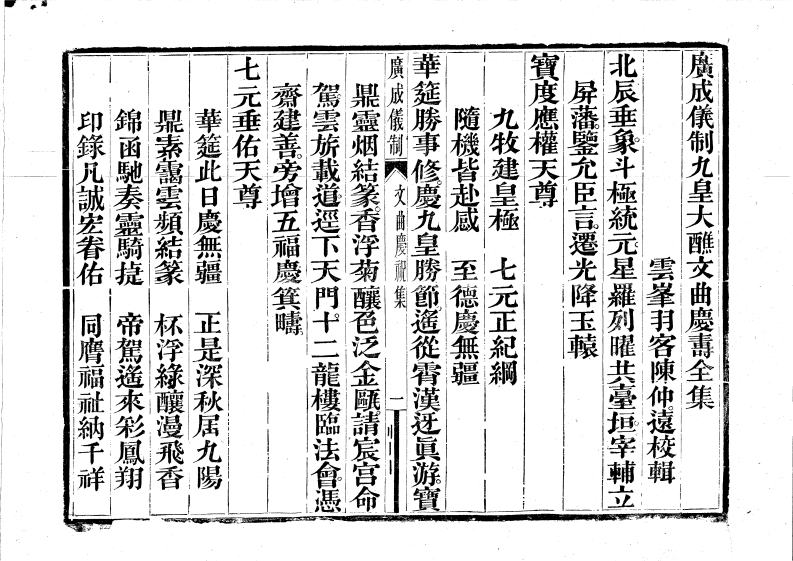 廣成儀制九皇大醮文曲慶壽全集
雲峯羽客陳仲遠校輯
北辰垂象斗極統元星羅列曜共臺垣宰輔立
屏藩鑒允臣言遷光降玉轅
寶度應權天尊
九牧建皇極　七元正紀綱
隨機皆赴感　至德慶無疆
華筵勝事修慶九皇勝節遙從霄漢迓真游寶
廣成儀制　文曲慶祝集　一
鼎靈烟結篆香浮菊釀色泛金甌請宸宮命
駕雲旂載道逕下天門十二龍樓臨法會憑
齋建善旁增五福慶箕疇
七元垂佑天尊
華筵此日慶無疆　正是深秋居九陽
鼎素靄雲頻結篆　杯浮綠釀漫飛香
錦函馳奏靈騎捷　帝駕遙來彩鳳翔
印錄凡誠宏眷佑　同膺福祉納千祥